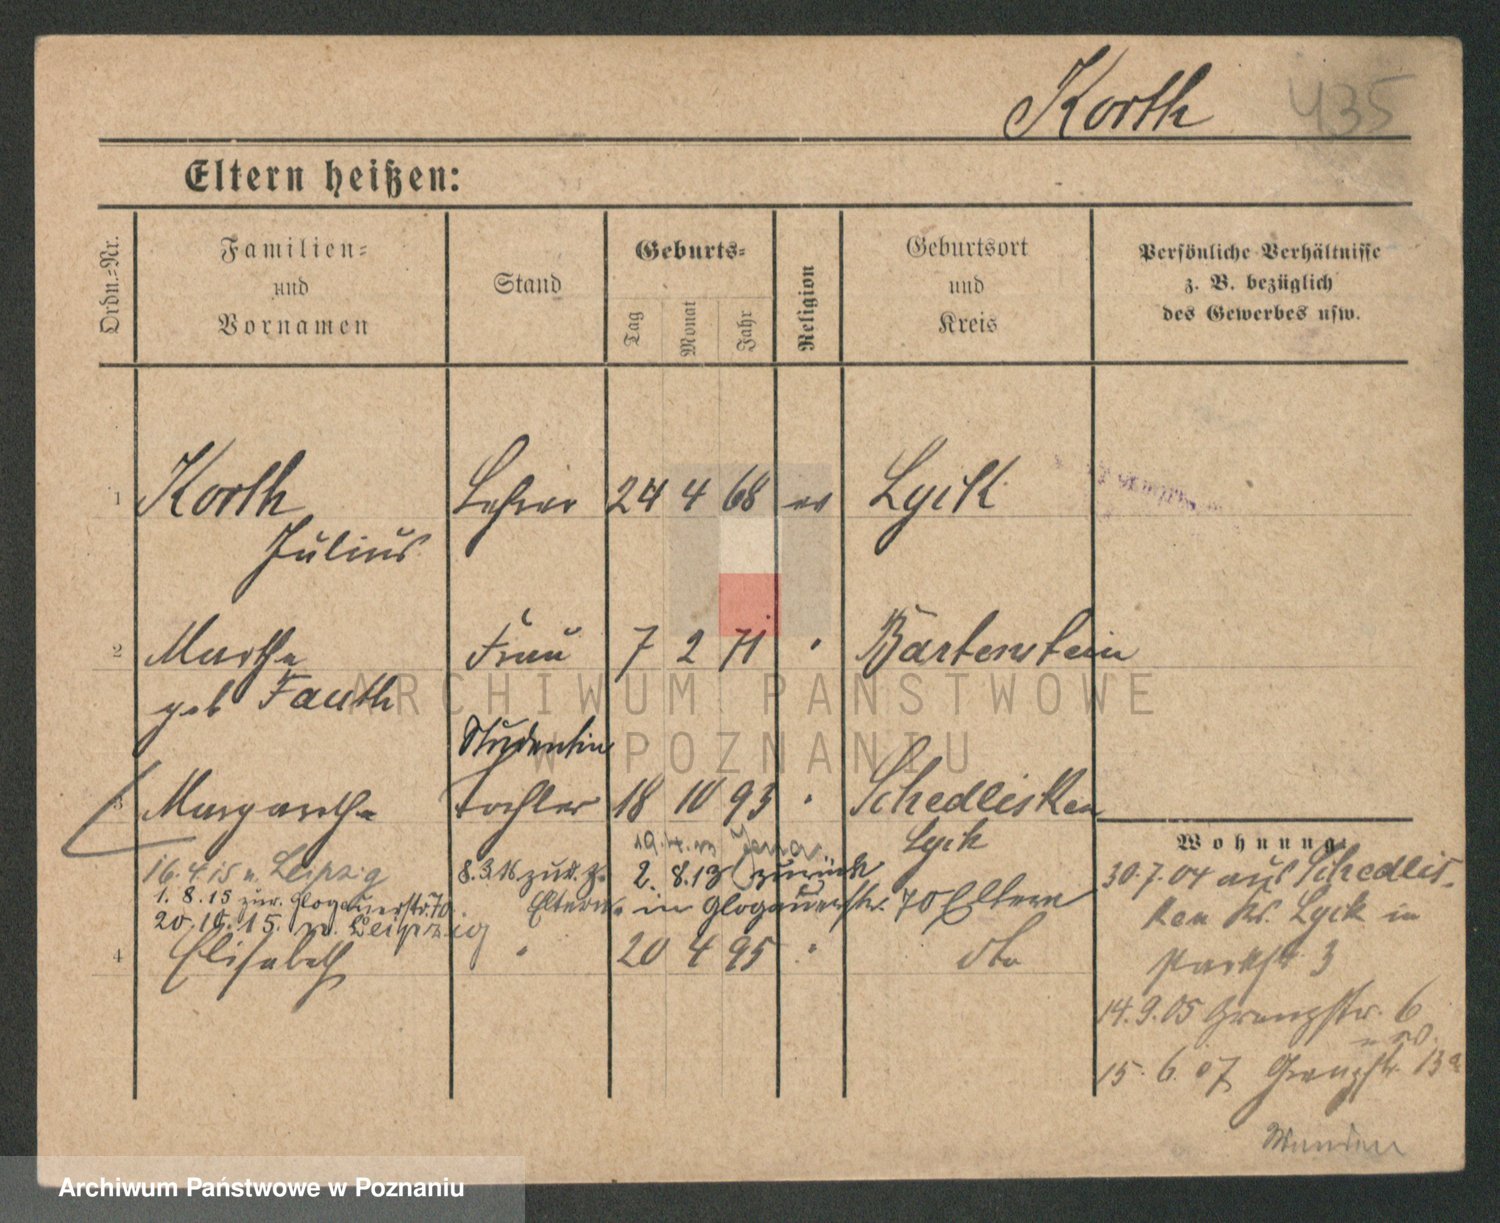 Korth 435
Eltern heißen:
Ordn.=Nr.
Familien=
und
Vornamen
Stand
Geburts=
Tag
Monat
Jahr
Religion
Geburtsort
und
Kreis
Persönliche Verhältnisse
z. B. bezüglich
des Gewerbes usw.
1 Korth Lehrer 24 4 68 ev Lyck
Julius
2 Marthe Frau 7 2 71 " Bartenstein
geb Fauth
Studentin
3 Margarethe Tochter 18 10 93 " Schedlisken
Lyck
19.4.13 Jena
16.4.15 n. Leipzig 8.3.16 zur. z. 2.8.13 zurück
1.8.15 zur. Glogauerstr. 70 Eltern in Glogauerstr. 70 Eltern
20.10.15. n. Leipzig
4 Elisabeth " 20 4 95 " dto
Wohnung:
30.7.04 aus Schedlis-
ken Kr. Lyck in
Parkstr 3
14.9.05 Grenzstr. 6
15.6.07 Grenzstr. 13a
ARCHIWUM PAŃSTWOWE
W POZNANIU
Archiwum Państwowe w Poznaniu